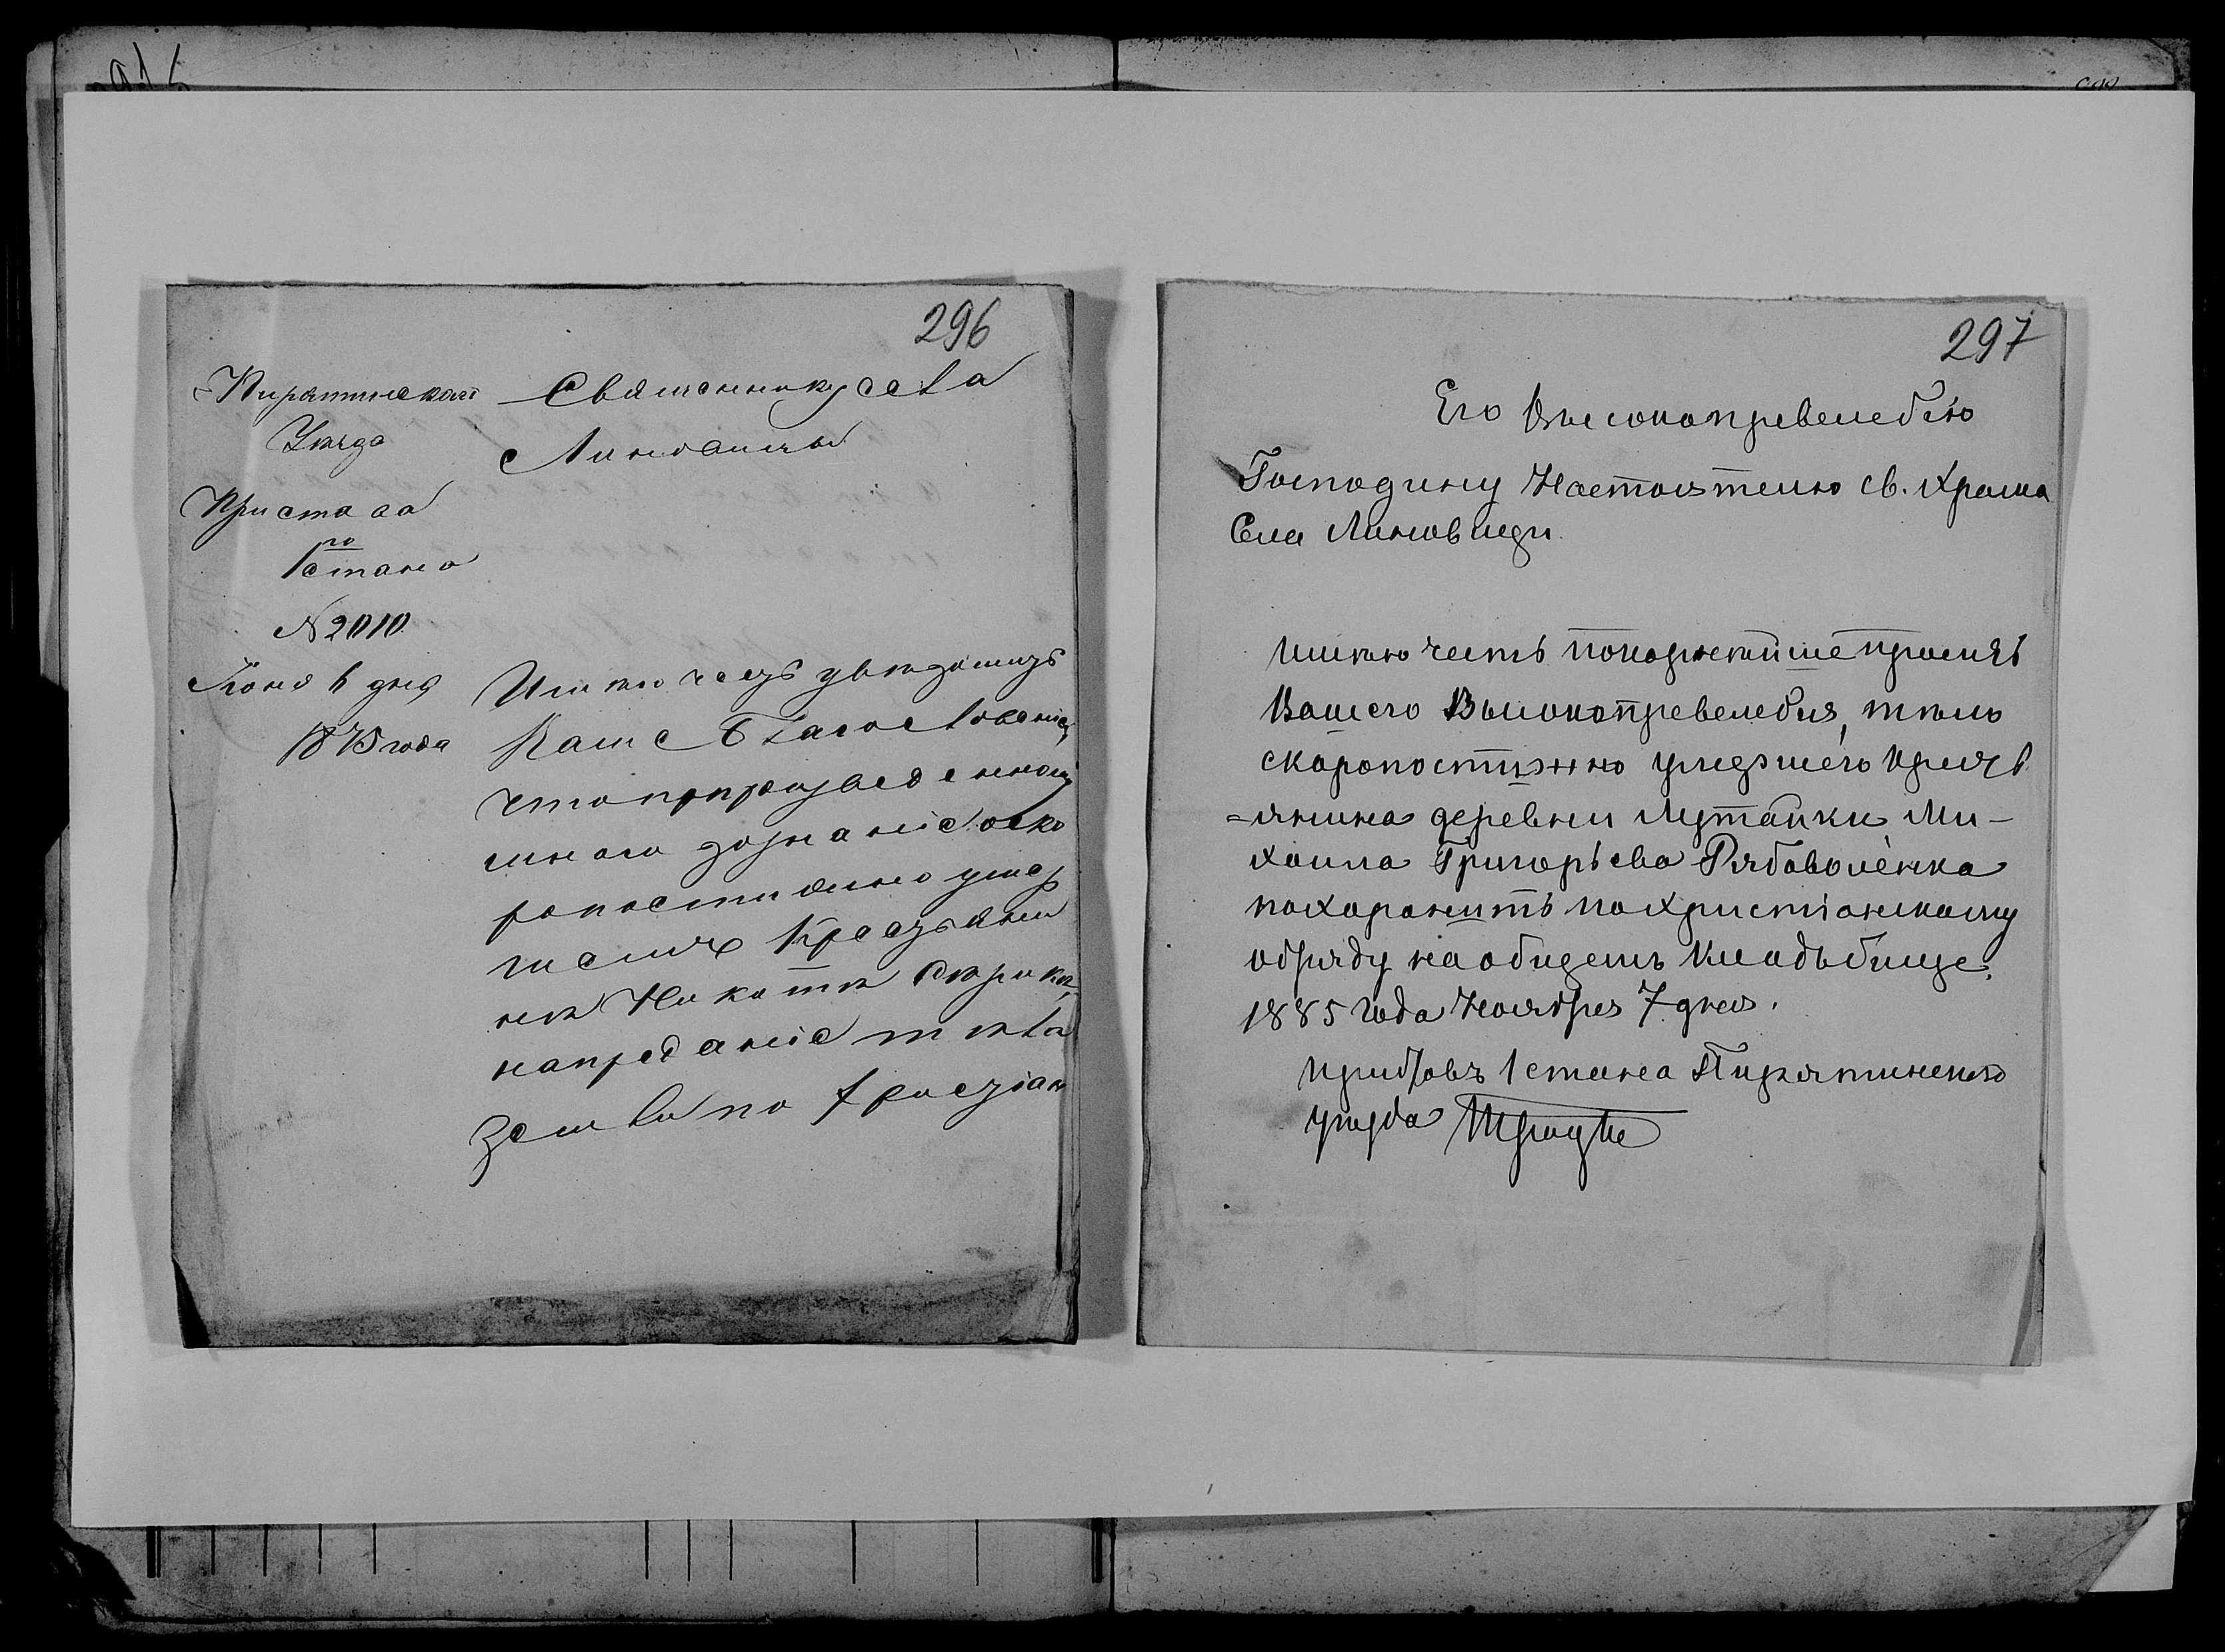 296
Пирятинскаго
Уѣзда
Пристава
1го стана
N 2010
Юня 6 дня
1875 года
Священнику села
Линовицы
Имѣю честь увѣдомить
Ваше Благословеніе,
что по произведенному
мною дознанію о ско
ропостижно умер
шемъ Крестьяни
нѣ
на преданіе тѣла
землѣ по
297
Его Высокопревелебію
Господину Настоятелю св. Храма
Села Линовици.
Имѣю честь покорнейше просить
Вашего Высокопревелебия, тело
скоропостижно умершего крестъ
=янина деревни Мутайки Ми-
хаила Григорьева Рябоволенка
похоронить по христіанскому
обряду на общемъ кладьбище.
1885 года Ноября 7 дня.
Приставъ 1 стана Пирятинского
уезда